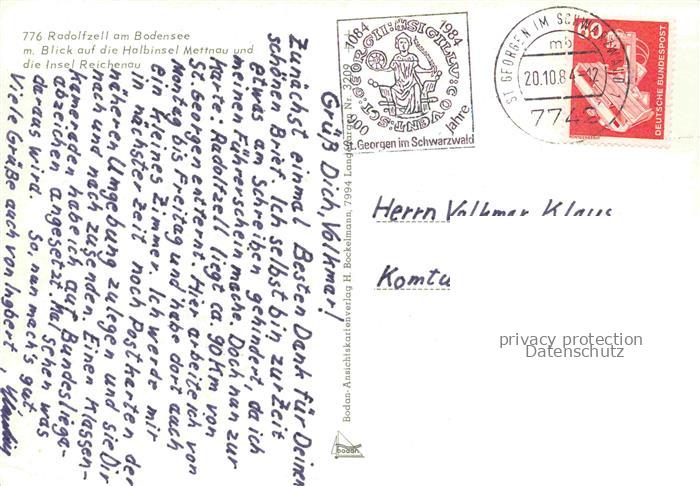 776 Radolfzell am Bodensee
m. Blick auf die Halbinsel Mettnau und
die Insel Reichenau
Grüß Dich, Volkmar!
Zunächst einmal Besten Dank für Deinen
schönen Brief. Ich selbst bin zur Zeit
etwas am Schreiben gehindert, da ich
m. Führerschein mache. Doch nun zur
Karte: Radolfzell liegt ca 90 km von
St. Georgen entfernt. Hier arbeite ich von
Montag bis Freitag und habe dort auch
ein kleines Zimmer. Ich werde mir
in nächster Zeit noch Postkarten der
näheren Umgebung zulegen und sie Dir
nach und nach zusenden. Einen Klassen-
kameraden habe ich auf Bundesliega-
abzeichen angesetzt. Mal sehen was
daraus wird. So, nun mach's gut
Viele Grüße auch von Ingbert,
Bodan-Ansichtskartenverlag H. Bockelmann, 7994 Langenargen Nr. 3209
bodan
1084 1984
900 Jahre
St. Georgen im Schwarzwald
ST GEORGEN IM SCHWARZWALD
mb
20.10.84-12
7742
60
DEUTSCHE BUNDESPOST
Herrn Volkmar Klaus
Komtu
privacy protection
Datenschutz